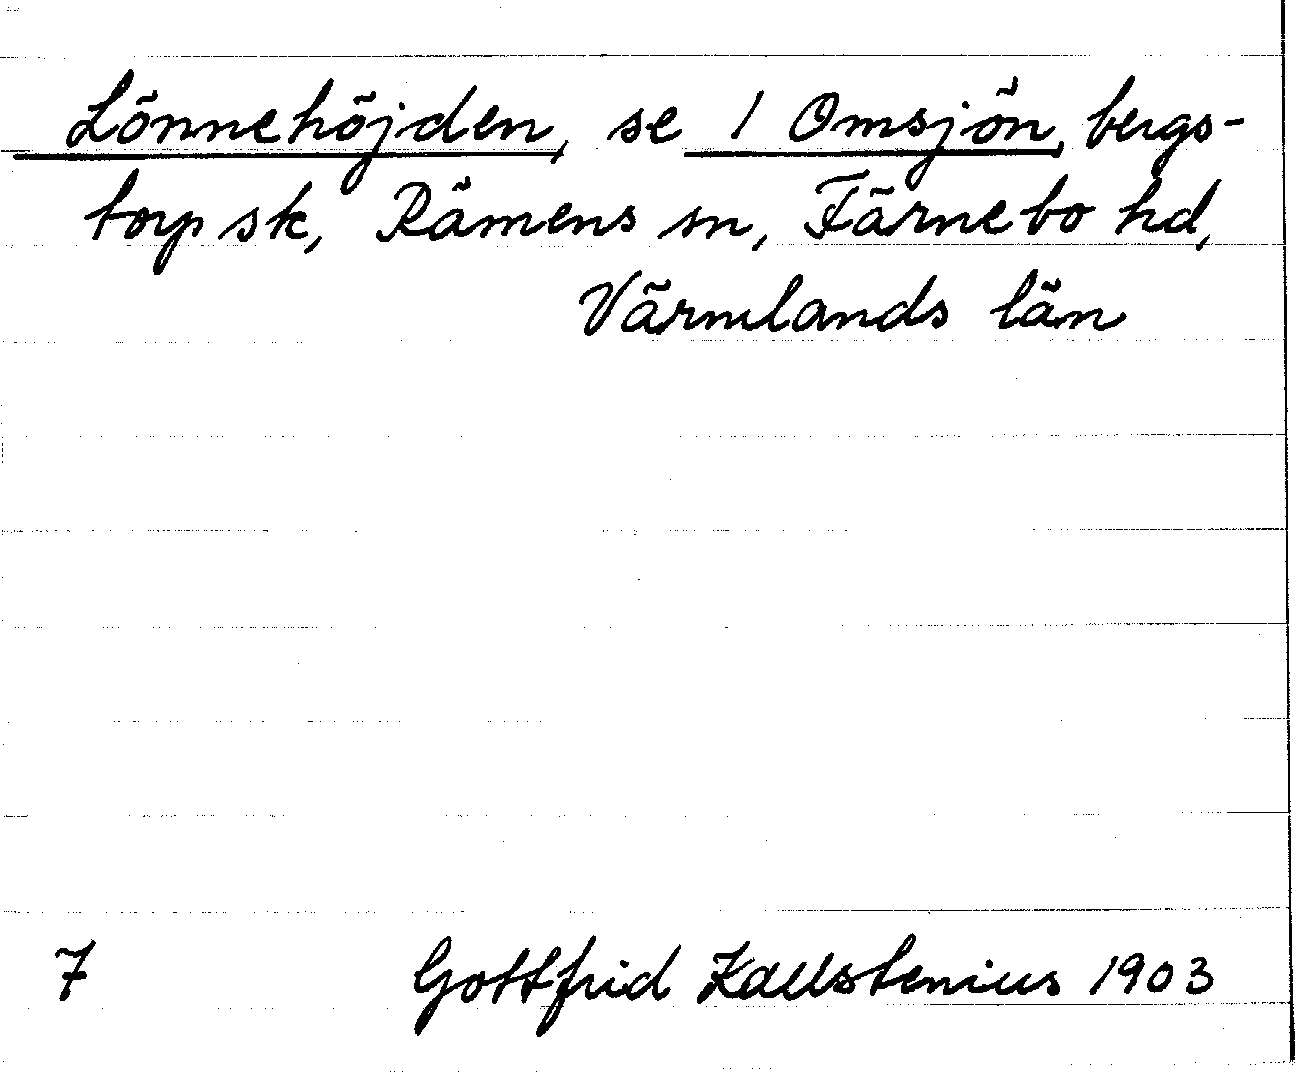 Lönnehöjden, se 1 Omsjön, bergs-
torp sk, Rämens sn, Färnebo hd,
Värmlands län
7 Gottfrid Kallstenius 1903